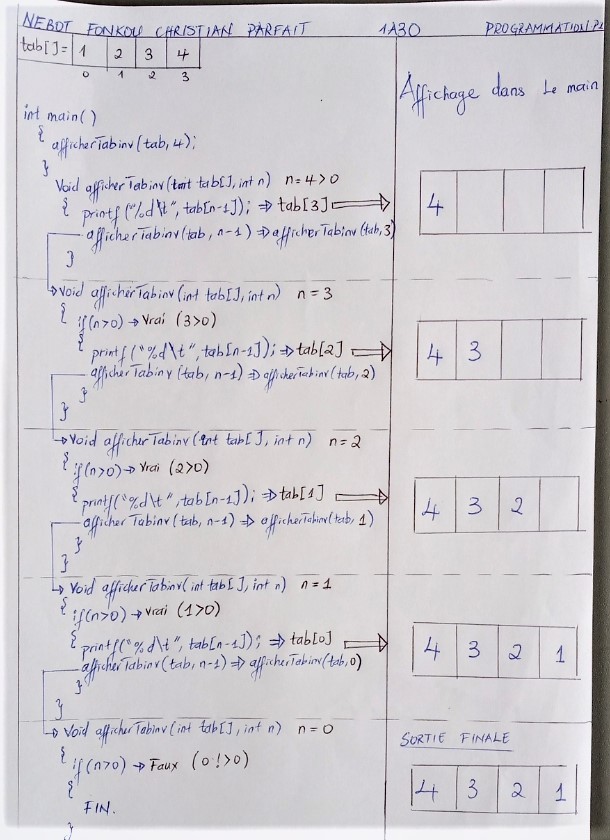 NEBOT FONKOU CHRISTIAN PARFAIT 1A30 PROGRAMMATION P1
tab[]= 1 2 3 4
0 1 2 3
Affichage dans Le main
int main()
{
afficherTabinv(tab,4);
}
Void afficherTabinv(int tab[], int n) n=4>0
{ printf("%d\t", tab[n-1]); => tab[3]
4
afficherTabinv(tab, n-1) => afficherTabinv(tab,3)
}
Void afficherTabinv(int tab[], int n) n=3
{ if(n>0) → Vrai (3>0)
{
printf("%d\t", tab[n-1]); => tab[2]
4 3
afficherTabinv(tab, n-1) => afficherTabinv(tab,2)
}
}
Void afficherTabinv(int tab[], int n) n=2
{ if(n>0) → Vrai (2>0)
{ printf("%d\t", tab[n-1]); => tab[1]
4 3 2
afficherTabinv(tab, n-1) => afficherTabinv(tab,1)
}
}
Void afficherTabinv(int tab[], int n) n=1
{ if(n>0) → Vrai (1>0)
{ printf("%d\t", tab[n-1]); => tab[0]
4 3 2 1
afficherTabinv(tab, n-1) => afficherTabinv(tab,0)
}
}
Void afficherTabinv(int tab[], int n) n=0
SORTIE FINALE
{ if(n>0) → Faux (0!>0)
4 3 2 1
{
FIN.
}